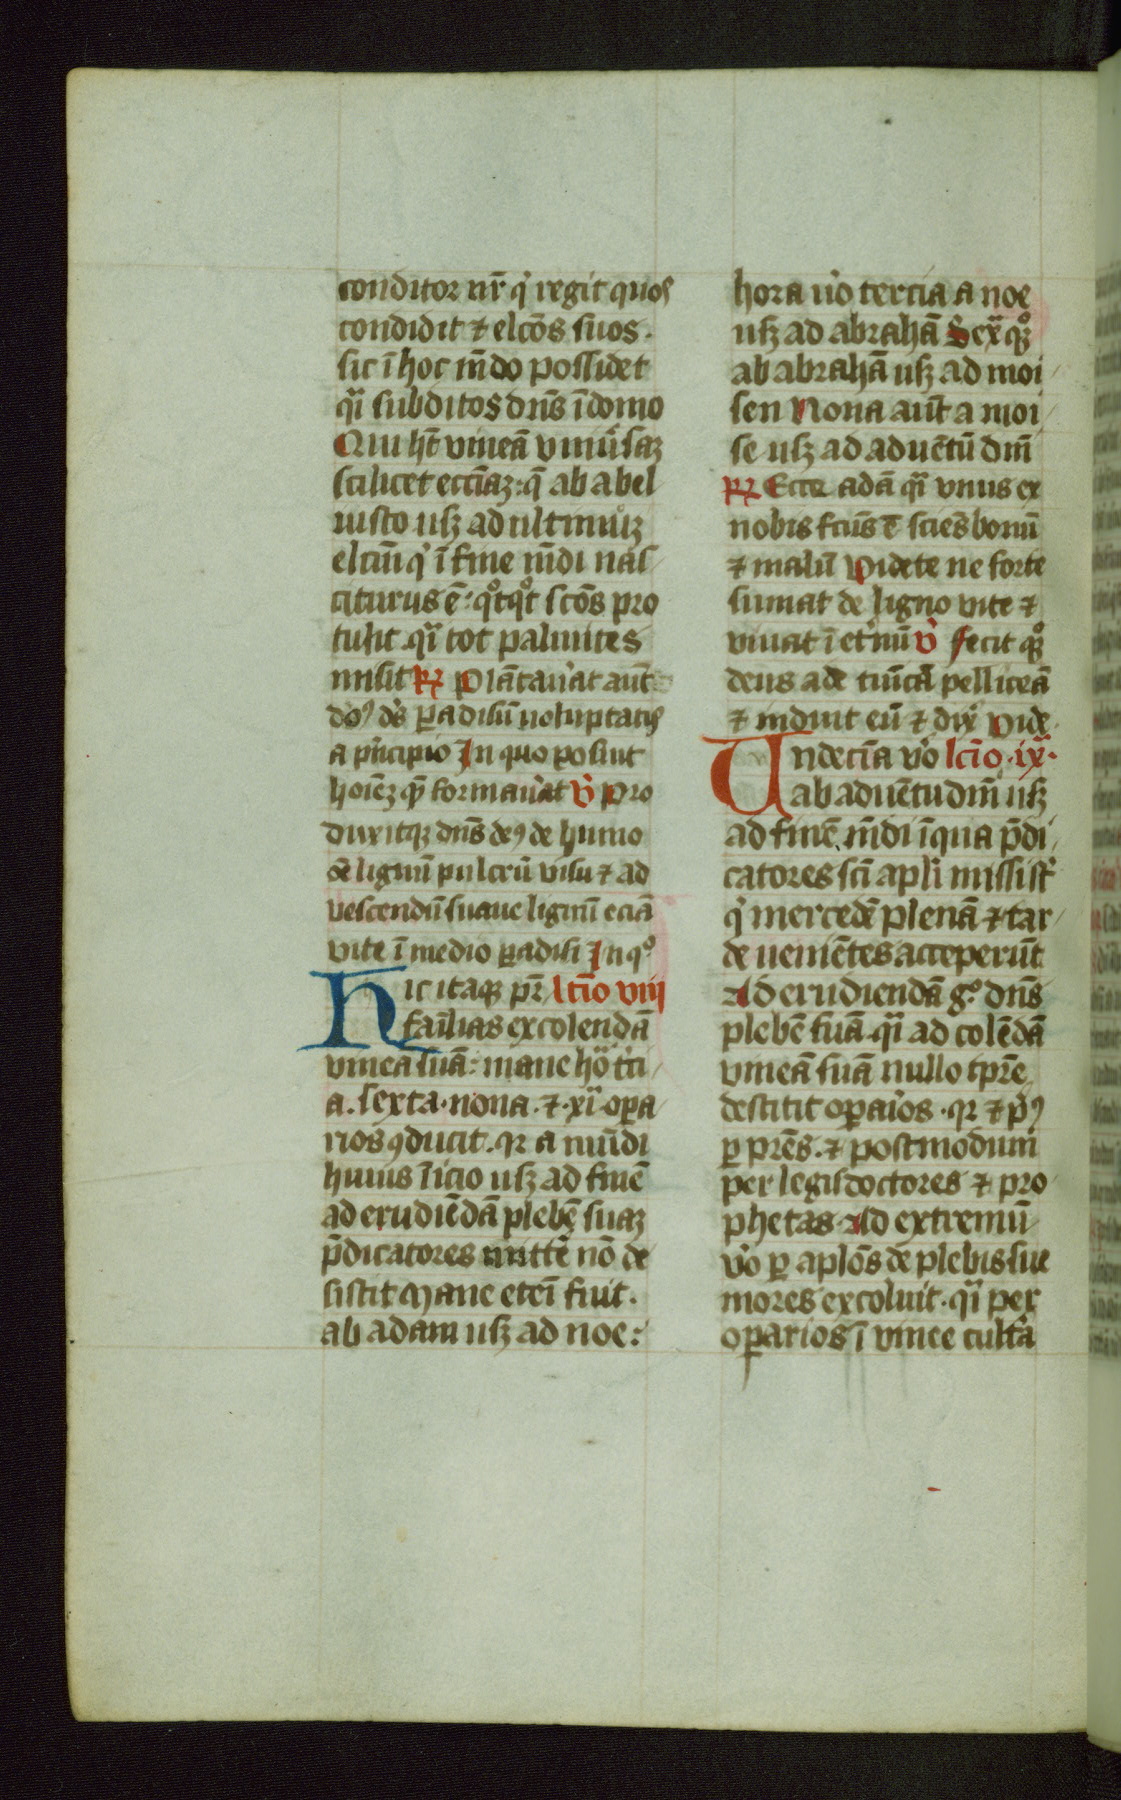 conditor nr̄ q̇ regit quos
condidit ⁊ elc̄os suos.
sic ī hoc m̄do possidet
qͣi subditos dn̄s ī domo
Qui ht̄ vineā vniūsaꝫ
scilicet eccīaꝫ: q̄ ab abel
iusto usꝫ ad ultimūꝫ
elc̄m q̇ ī fine m̄di nas
citurus ē: qͦtqͦt sc̄os pro
tulit. qͣi tot palmites
misit ꝶ Plātaūat aūt
dn̄s de⁹ ꝑadisū uoluptatis
a pͥncipio In quo posuit
hoīeꝫ quē formaūat v̄ Pro
duxitqꝫ dn̄s de⁹ de humo
oē lignū pulcrū visu ⁊ ad
vescendū suaue lignū eciā
vite ī medio ꝑadisi In qͦ
Hic itaqꝫ pr̄ lc̄io viij
fāilias excolendā
vineā suā: mane hoͣ t̄ci
a. sexta. nona. ⁊ .xiͣ. oꝑa
rios ꝯducit. qꝛ a mūdi
huius īicio usꝫ ad finē
ad erudiēdā plebē suaꝫ
p̄dicatores mitte nō de
sistit Mane eteī fuit.
ab adam usꝫ ad noe:
hora ūo tercia a noe
usꝫ ad abrahā Sexͣ qꝫ
ab abrahā usꝫ ad moi
sen Nona aūt a moi
se usꝫ ad aduētū dn̄i
ꝶ Ecce adā qͣi vnus ex
nobis fc̄us ē sciēs bonū
⁊ malū Videte ne forte
sumat de ligno vite ⁊
viuat ī et̄nū v̄ Fecit qꝫ
deus ade tūicā pelliceā
⁊ induit eū ⁊ dix̄ Vide
Undecīa vͦo lc̄io .ixͣ.
ab aduētu dn̄i usꝫ
ad finē m̄di ī qua p̄di
catores sc̄i apl̄i missi st̄
q̇ mercedē plenā ⁊ tar
de uenientes acceperūt
Ad erudiendā gͦ dn̄s
plebē suā qͣi ad colēdā
vineā suā nullo tp̄re
destitit oꝑaīos. qꝛ ⁊ pͥ⁹
ꝑ pr̄es. ⁊ postmodum
per legis doctores ⁊ pro
phetas. Ad extremū
vͦo ꝑ apl̄os de plebis sue
mores excoluit. qͣi per
oꝑarios ī vinee cult̄a